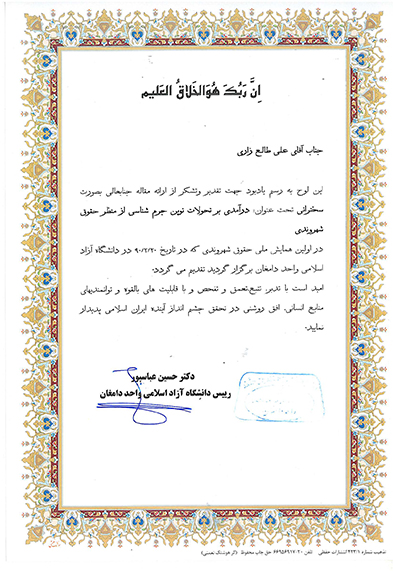 إنَّ رَبُّكَ هُوَ الخَلاقُ العَلیم
جناب آقای علی طالع زاری
این لوح به رسم یادبود جهت تقدیر وتشکر از ارائه مقاله جنابعالی بصورت
سخنرانی تحت عنوان: درآمدی بر تحولات نوین جرم شناسی از منظر حقوق
شهروندی
در اولین همایش ملی حقوق شهروندی که در تاریخ ۹۰/۲/۲۰ در دانشگاه آزاد
اسلامی واحد دامغان برگزار گردید تقدیم می گردد.
امید است با تدبر، تتبع،تعمق و تفحص و با قابلیت های بالقوه و توانمندیهای
منابع انسانی، افق روشنی در تحقق چشم انداز آینده ایران اسلامی پدیدار
نمایید.
دکتر حسین عباسپور
رییس دانشگاه آزاد اسلامی واحد دامغان
تذهیب شماره ۲۲۳/۱ انتشارات حفظی تلفن ۲۰-۶۶۹۵۶۹۱۷ حق چاپ محفوظ (اثر هوشنگ نعمتی)